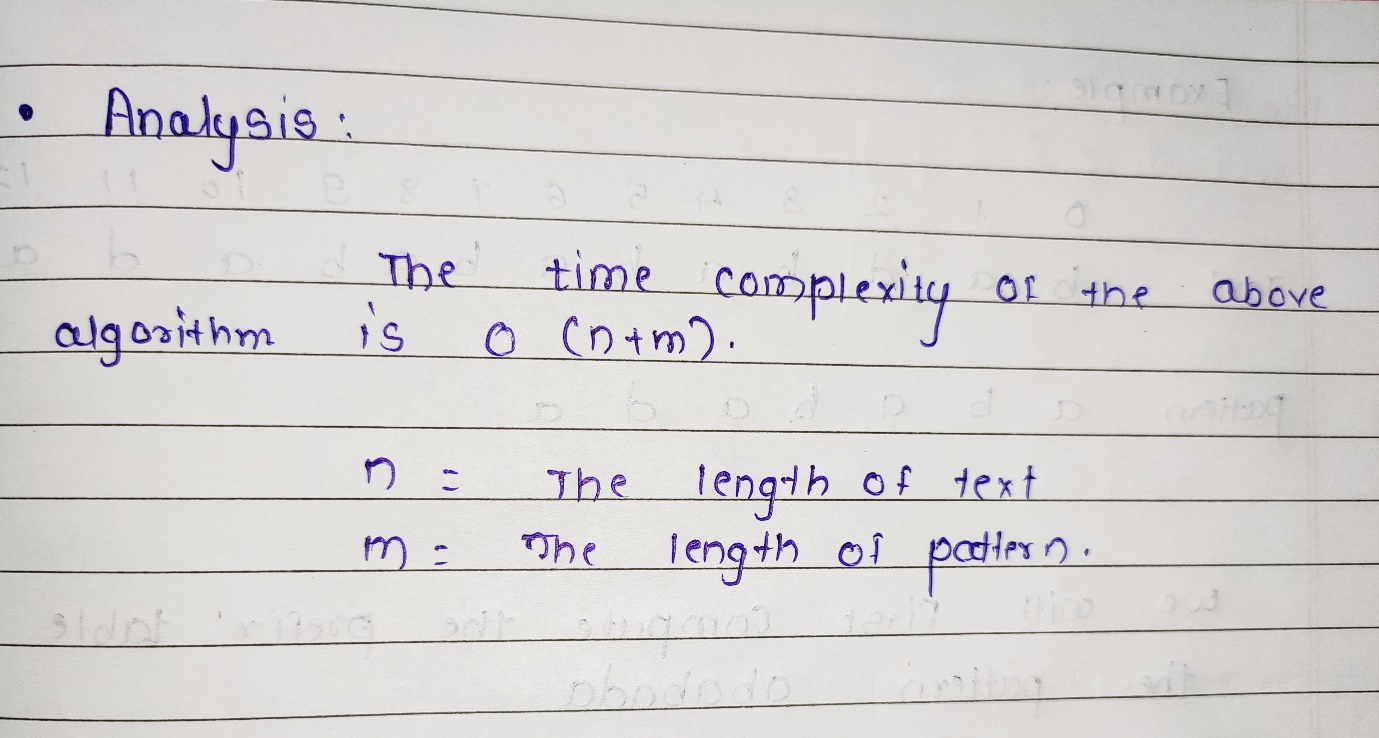 • Analysis:
The time complexity of the above
algorithm is O (n+m).
n = The length of text
m = The length of pattern.